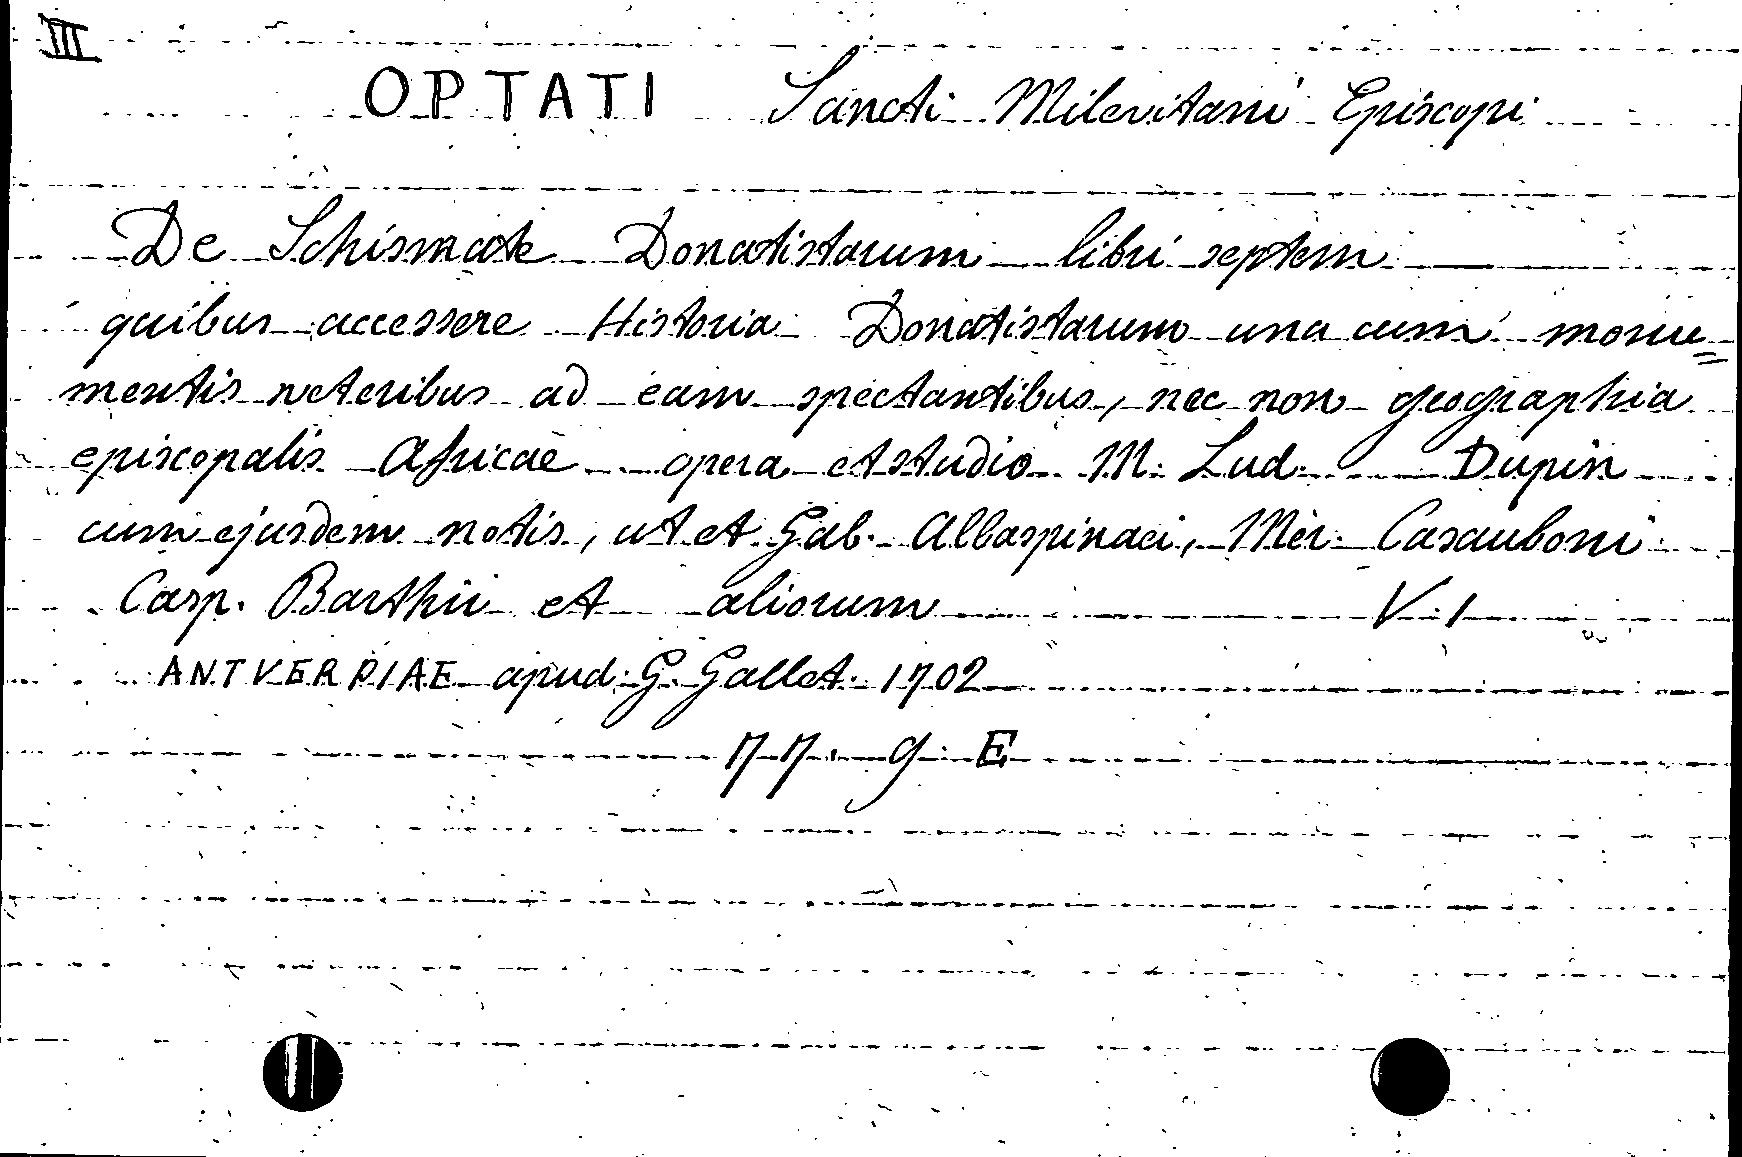 III
OPTATI Sancti Milevitani Episcopi
De Schismate Donatistarum libri septem
quibus accessere Historia Donatistarum una cum monu=
mentis veteribus ad eam spectantibus, nec non geographia
episcopalis Africae opera et studio M. Lud. Dupin
cum ejusdem notis, ut et Gab. Albaspinaei, Mer. Casauboni
Casp. Barthii et aliorum V. 1
ANTVERPIAE apud G. Gallet. 1702
77. 9. E